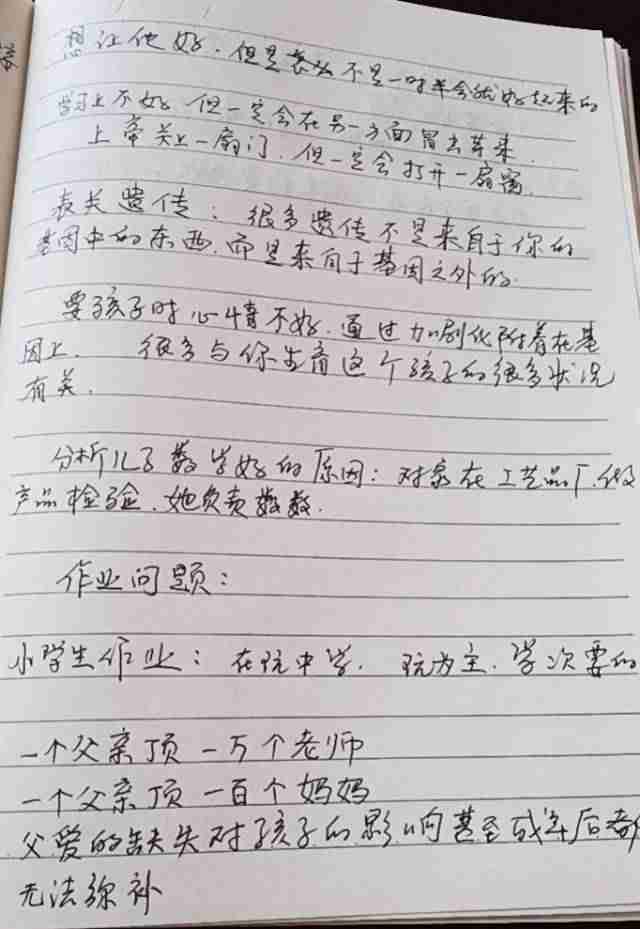 想让他好。但是表么不是一时半会就好起来的
学习上不好 但一定会在另一方面冒出芽来.
上帝关上一扇门. 但一定会打开一扇窗.
表关遗传: 很多遗传不是来自于你的
基因中的东西,而是来自于基因之外的.
要孩子时心情不好. 通过 附着在基
因上. 很多与你生育这个孩子的很多状况
有关.
分析儿子数学好的原因: 对象在工艺品厂.做
产品检验. 她负责数数.
作业问题:
小学生作业: 在玩中学. 玩为主. 学次要的
一个父亲顶一万个老师
一个父亲顶一百个妈妈
父爱的缺失对孩子的影响甚至成年后都
无法弥补